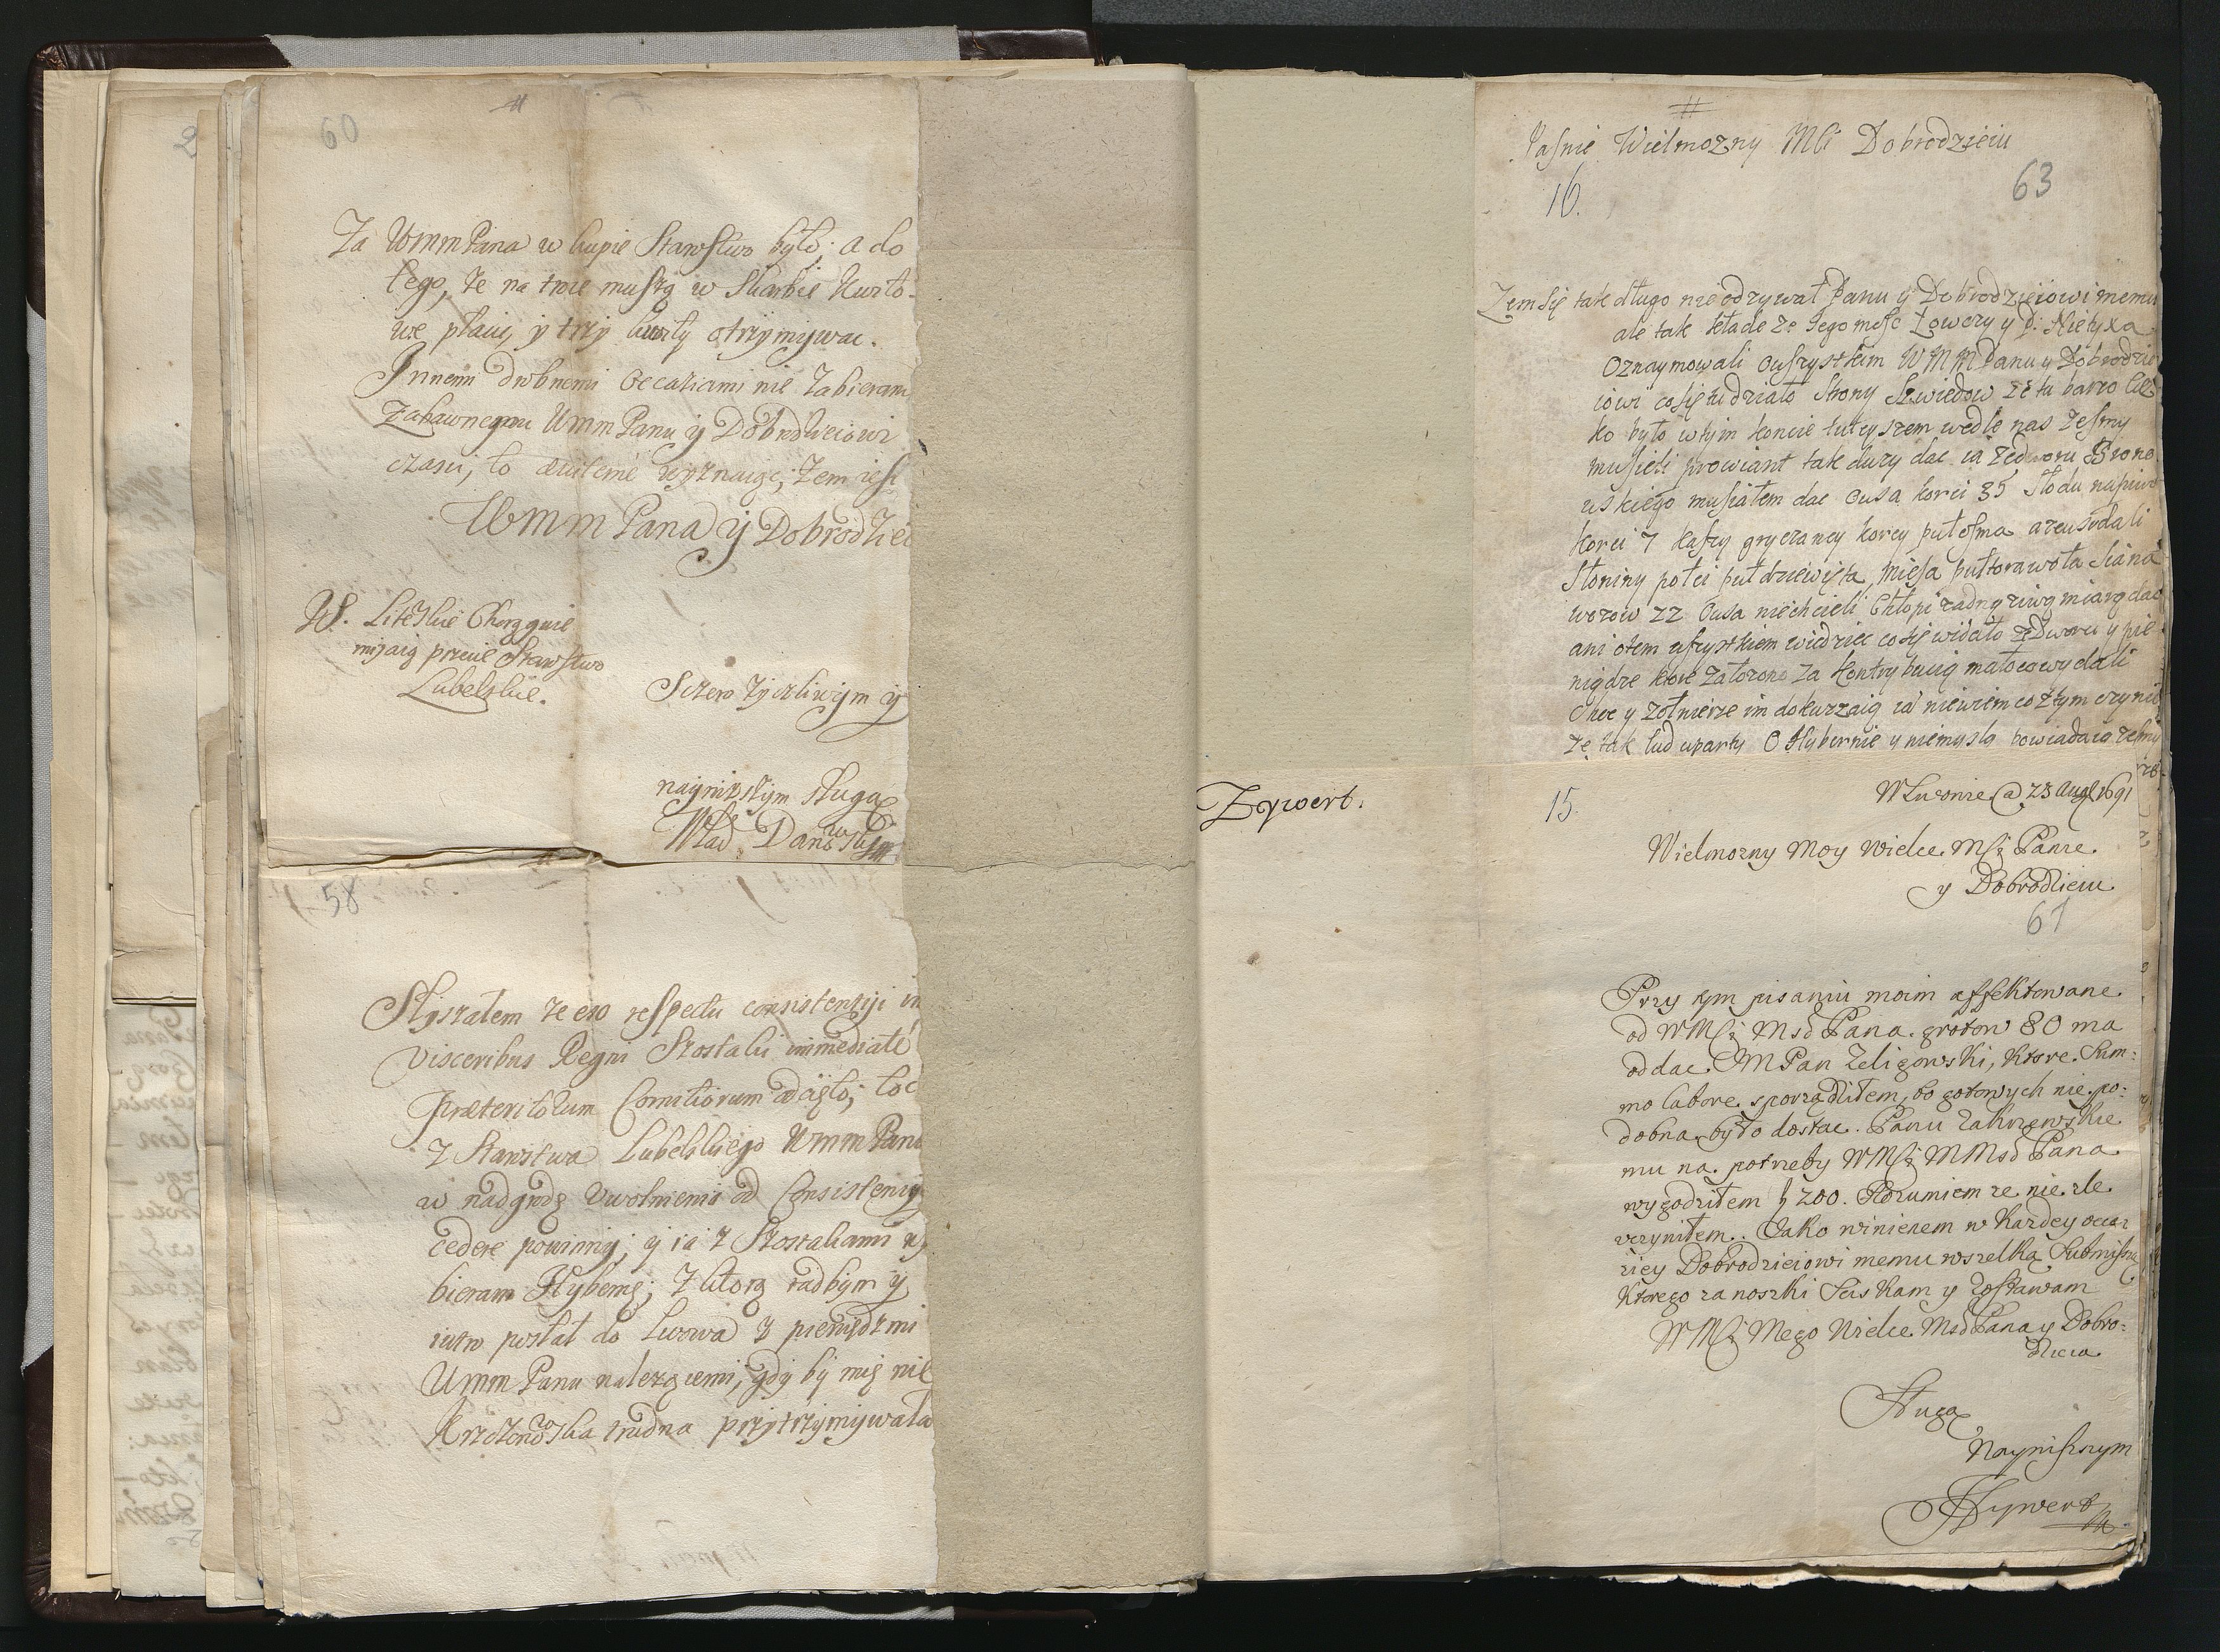 60
Za WMM Pana w kupie Starostwo było; a do
tego, że na troie muszą w Skarbie Kwito-
we płacić, y trzy kwity otrzymywac.
Innemi drobnemi occaziami nie zabieram
Zabawnemu UMM Panu ÿ Dobrodzieiowi
czasu, to wyznaiąc, żem iest
WMM Pana ÿ Dobrodzie
W. Litewskie Chorągwie
miiaią przecie Starostwo
Lubelskie.
Sczero życzliwym ÿ
nayniższym sługą
Wład Danowski
58
Słyszałem że exo respectu consistentiji in
visceribus Regni Szostaki immediate
Præteritorum Comitiorum odięto; toć
z Starostwa Lubelskiego UMM Pana
w nadgrodę Uwolnienia od Consistenÿ
cedere powinny; ÿ ia z Szostakami wy
bieram Hybernę; z ktorą radbym ÿ
iutro posłał do Lwowa z pieniędzmi
UMM Panu należącemi, gdy by mię nie
trudna przytrzymywała
Zywert.
Jasnie Wielmozny Mci Dobrodzieiu
16.
63
Zem się tak długo nie odzywał Panu y Dobrodzieiowi memu
ale tak kładę ze Iegomosc Łowczy y P.
Oznaymowali owszystkim WMM Panu y Dobrodzie
iowi co się tu działo Strony Szwedow ze tu barzo
ko było wtym koncie tutyszem wedle nas zesmy
musieli prowiant tak duzy dac ia ze dworu Brono
uskiego musiałem dac Owsa korci 35 słodu napiwo
korci 7 kaszy gryczaney korcy puł osma
Słoniny połci puł dziewięta, Miesa pułtora woła Siana
wozow 22 Owsa niechcieli Chłopi zadną ziwą miarą dac
ani otem wszystkiem wiedziec co się widało ze dworu y pie
niądze ktore załozono za kontrybucią mało co wydali
Choc y zołnierze im dokuczaią ia niewiem co z tym czynic
ze tak lud uparty O Hybernie y niemyslą powiadaią zesmy
15.
W Lwowie @ 23 Aug 1691
Wielmozny Moy Wielce Msci Panie
y Dobrodzieiu
61
Przy tym pisaniu moim affektowane
od WMsci Msd Pana grotow 80 ma
oddac IM Pan Zeligowski, ktore Sum-
mo labore sporządziłem, bo gotowych nie po-
dobna było dostac. Panu Zakrzewskie
mu na potrzeby WMsci MMsd Pana
wygodziłem f 200. Rozumiem ze nie zle
uczyniłem. Iako winienem w kazdey occa
ziey Dobrodzieiowi memu wszelką Submissią
Ktorego za noszki Sciskam y Zostawam
WMsci Mego Wielce Msd Pana y Dobro-
dzieia
Sługą
Nayniszszym
Zywert